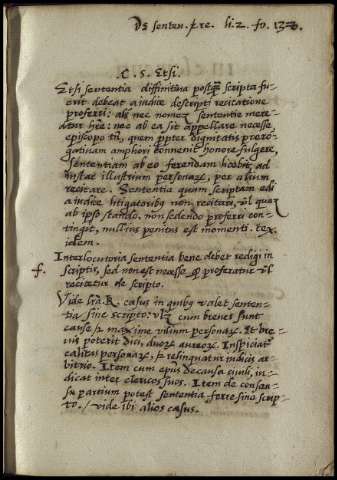 De senten. & re. li. 2. fo. 138.
C. 5. Etsi.
Etsi sententia diffinitiua postq̃ scripta fu-
erit debeat a iudice descripti recitatione
proferri: als nec nomen sententie mere-
atur hr̃e: nec ab ea sit appellare necesse,
episcopo tñ, quem ppter dignitatis prero-
gatiuam ampliori conuenit honore fulgere,
sententiam ab eo ferendam licebit, ad
instar illustrium personaꝝ, per alium
recitare. Sententia quam scriptam edi
a iudice litigatoribꝫ non recitari, ul̃ quaꝫ
ab ipso stando, non sedendo proferri con-
tingit, nullius penitus est momenti. tex.
idem.
f. Interlocutoria sententia bene debet redigi in
scriptis, sed non est necesse q̃ proferatur ul̃
recitetur de scripto.
Vide casus in quibꝫ valet senten-
tia sine scripto: ul̃ cum breues sunt
cause & maxime vilium personaꝝ. Et bre-
uis poterit dici, duoꝝ aureoꝝ. Inspiciatr̃
qalitas personaꝝ, & relinquatur iudicis ar-
bitrio. Item cum epũs de causa ciuili, in-
dicat inter clericos suos. Item de consen-
su partium potest sententia ferre sino scrip-
to. / vide ibi alios casus.